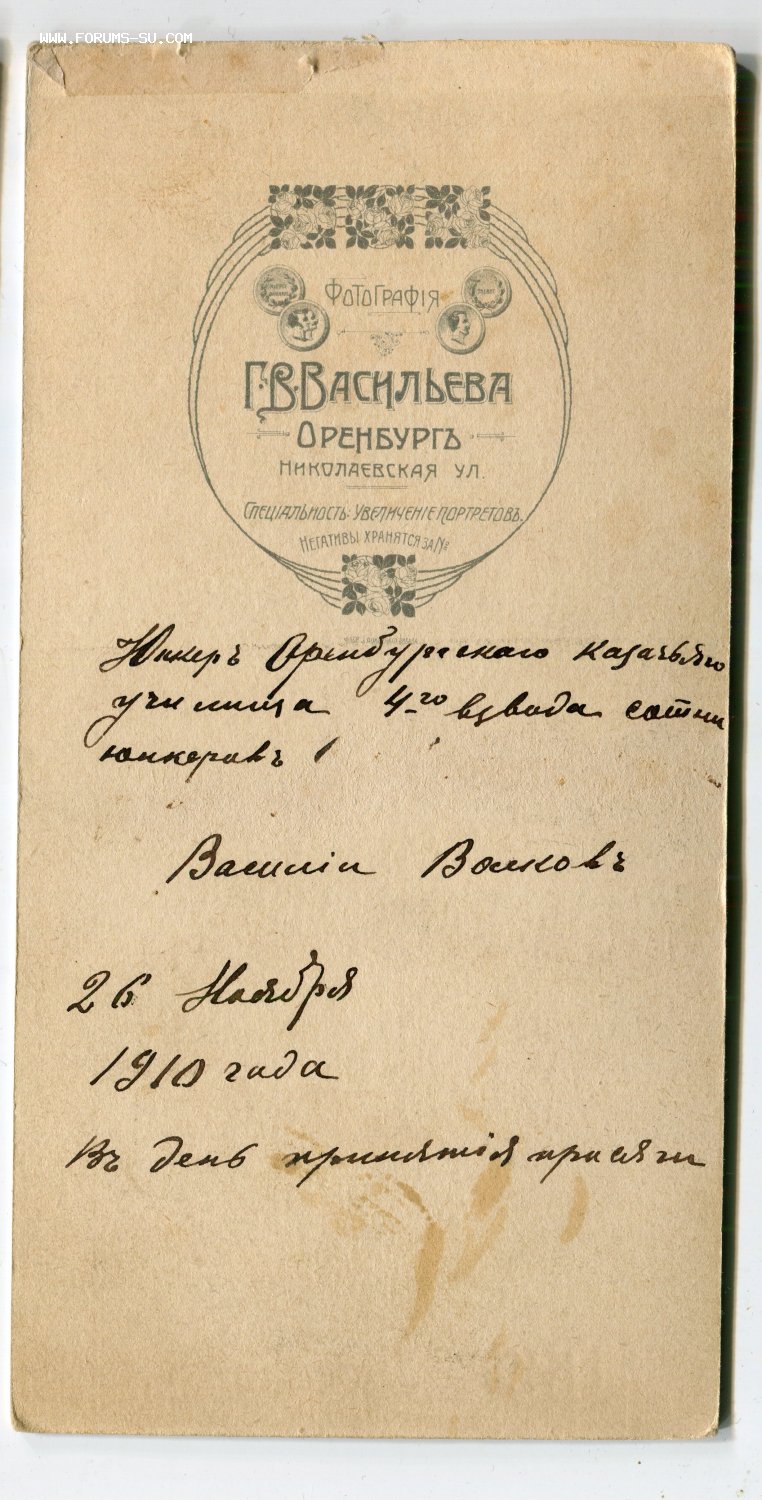 WWW.FORUMS-SU.COM
Фотографія
Г.В.Васильева
Оренбургъ
Николаевская ул.
Спеціальность: Увеличеніе портретовъ.
Негативы хранятся за №
Юнкеръ Оренбургскаго казачьяго
училища 4-го взвода сотни
юнкеровъ
Василій Волковъ
26 Ноября
1910 года
Въ день принятія присяги